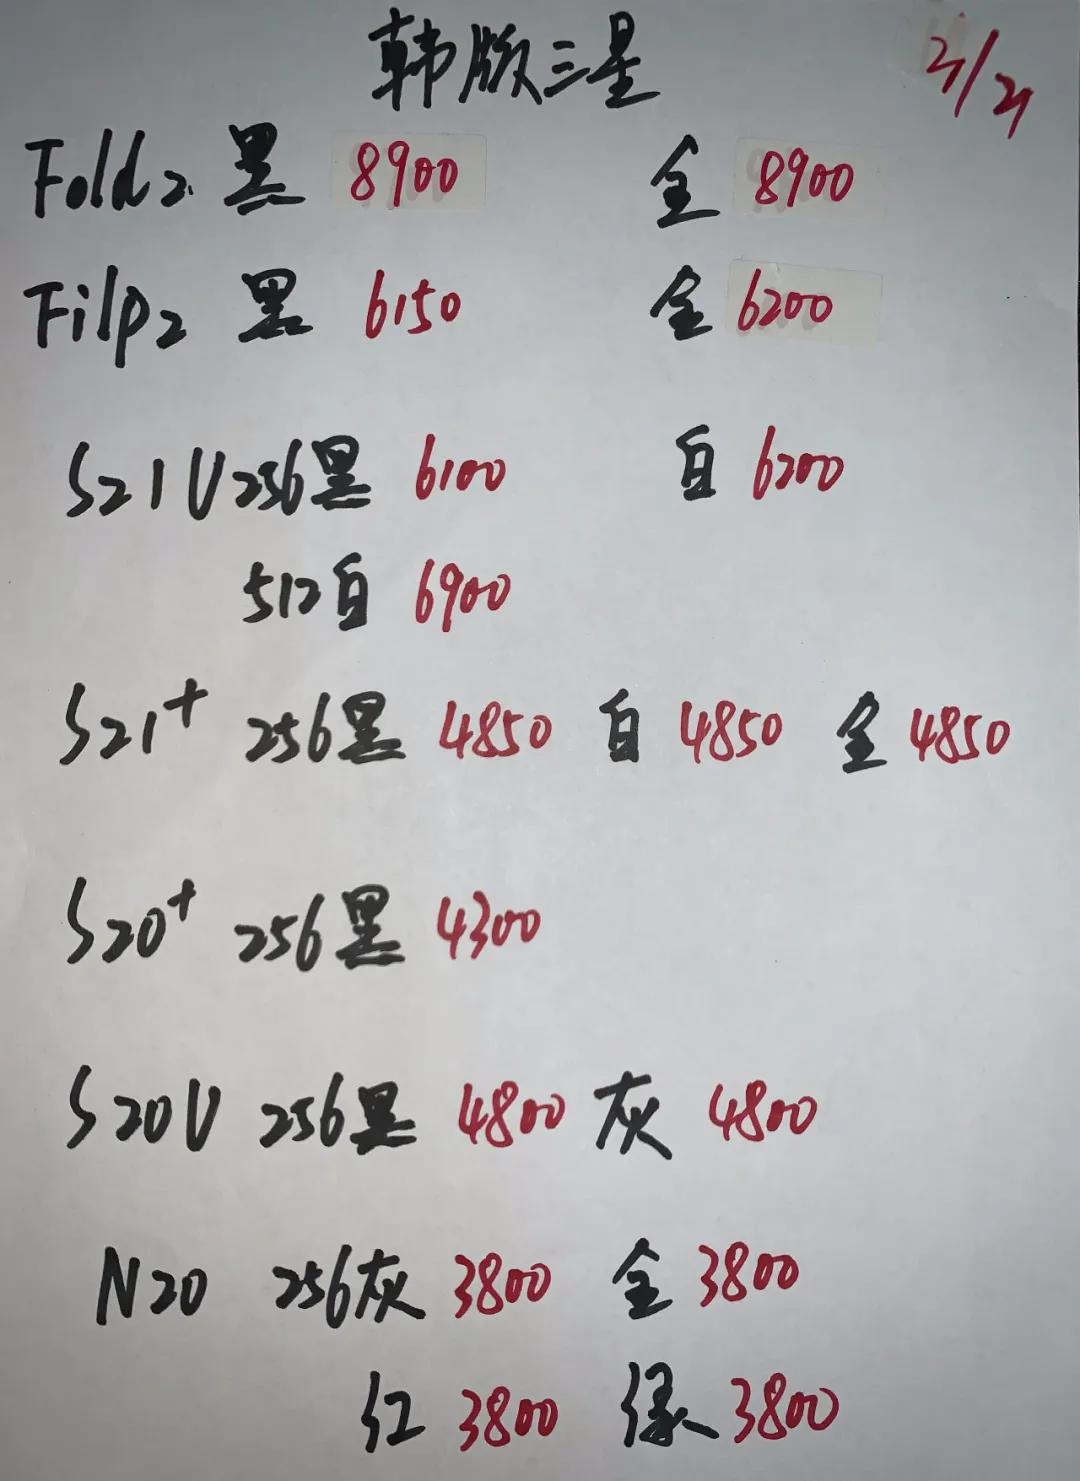 韩版三星 3/21
Fold2 黑 8900 金 8900
Filp2 黑 6150 金 6200
S21U 256黑 6100 白 6200
512白 6900
S21+ 256黑 4850 白 4850 金 4850
S20+ 256黑 4300
S20U 256黑 4800 灰 4800
N20 256灰 3800 金 3800
红 3800 绿 3800